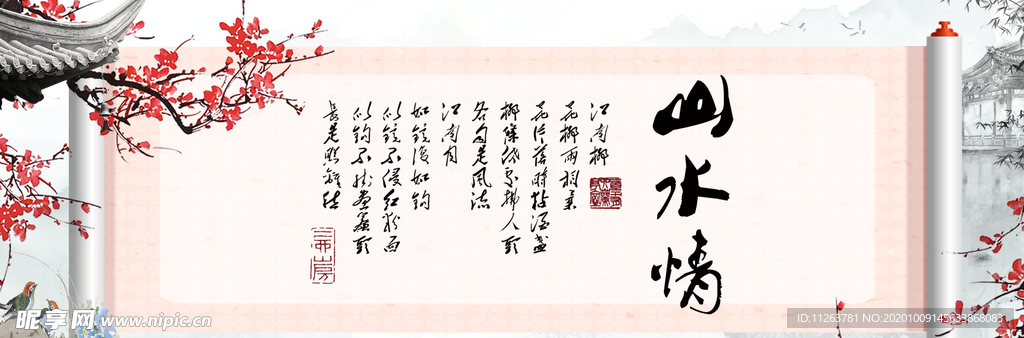 山水情
江南柳
花柳兩相柔
花片落時粘酒盞
柳條低處拂人頭
各自是風流
江南月
如鏡復如鈎
似鏡不侵紅粉面
似鈎不挂畫簾頭
長是照離愁
昵享网 www.nipic.cn
ID:11263781 NO:20201009145633868083